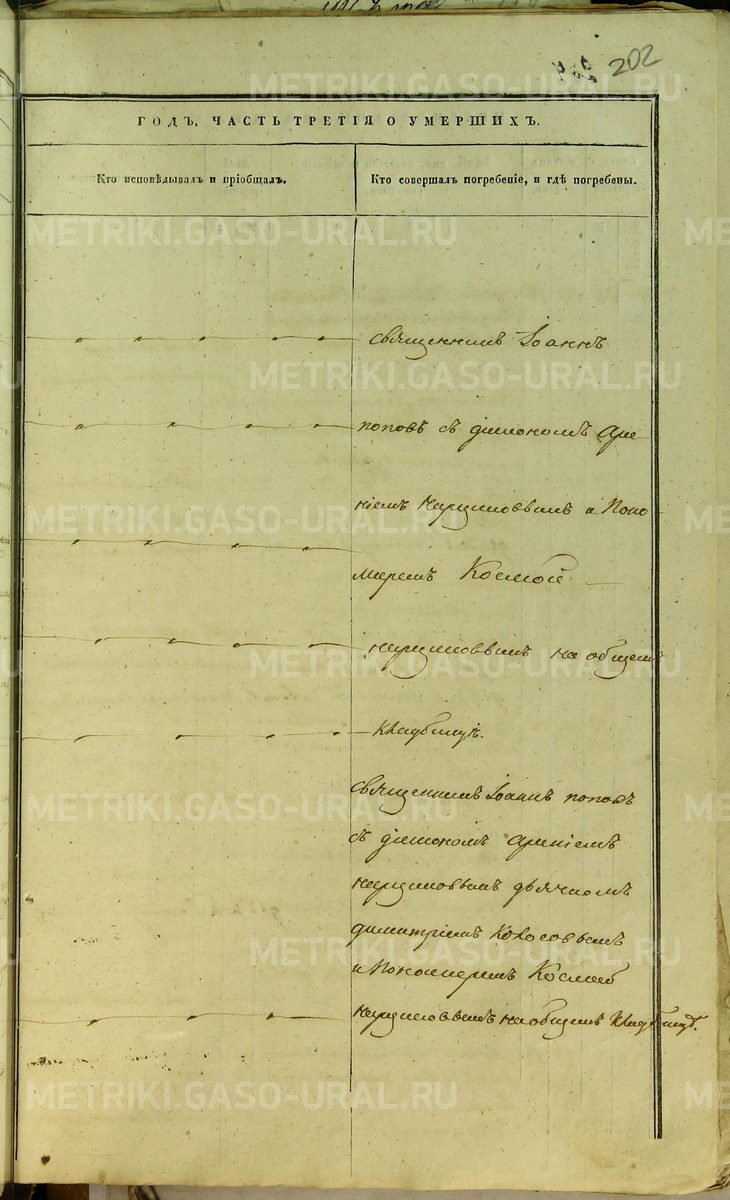 202
ГОДЪ, ЧАСТЬ ТРЕТІЯ О УМЕРШИХЪ.
Кто исповѣдывалъ и пріобщалъ.
Кто совершалъ погребеніе, и гдѣ погребены.
священникъ Іоаннъ
поповъ съ діакономъ Арсе
ніемъ и Поно
маремъ Космой
на общемъ
кладбищѣ.
священникъ Іоаннъ поповъ
съ діакономъ Арсеніемъ
дьячкомъ
димитріемъ Колосовымъ
и Пономаремъ Космой
на общемъ кладбищѣ.
METRIKI.GASO-URAL.RU